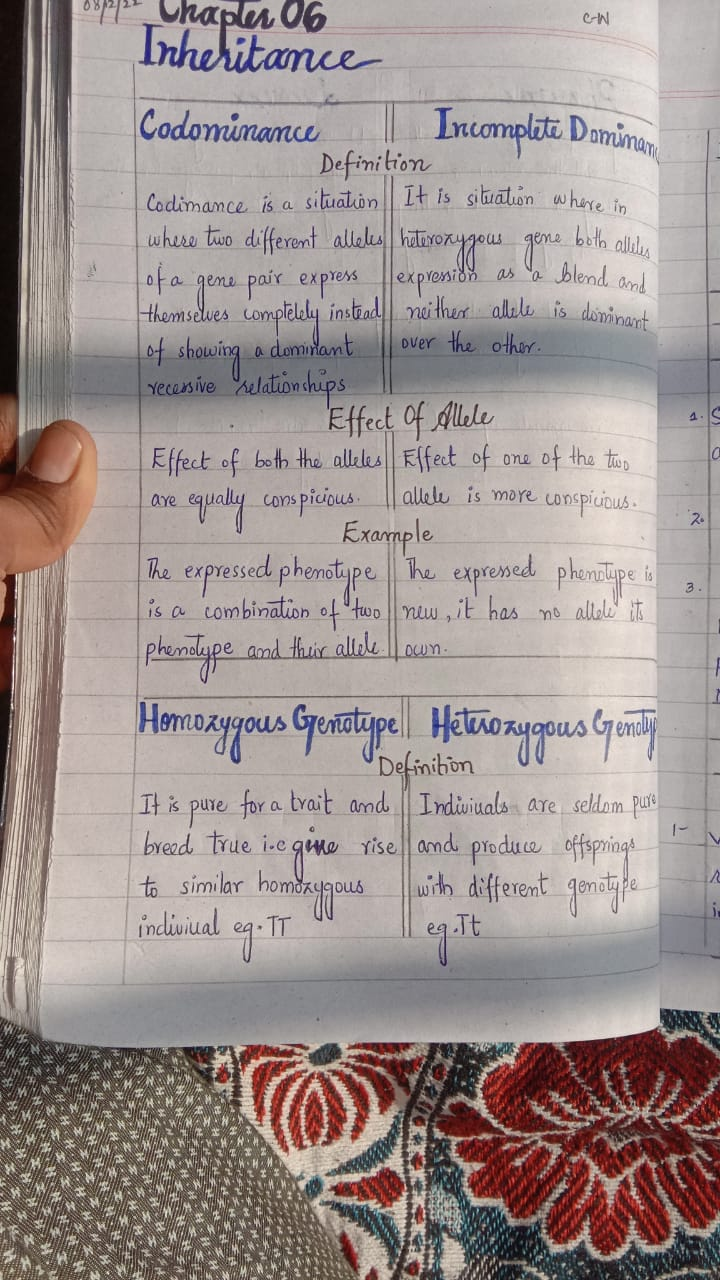 08/2/22 Chapter 06 C-W
Inheritance
Codominance
Incomplete Dominanc
Definition
Codimance is a situation
where two different alleles
of a gene pair express
themselves compltelely instead
of showing a dominant
recersive relationships
It is situation where in
heterozygous gene both alleles
expression as a blend and
neither allele is dominant
over the other.
Effect Of Allele
Effect of both the alleles
are equally conspicious.
Effect of one of the two
allele is more conspicious.
Example
The expressed phenotype
is a combination of two
phenotype and their allele.
The expressed phenotype is
new, it has no allele its
own.
Homozygous Genotype
Heterozygous Genoty
Definition
It is pure for a trait and
breed true i.e give rise
to similar homozygous
indiviual eg. TT
Indiviuals are seldom pure
and produce offsprings
with different genotype
eg. Tt
1.
2.
3.
1-